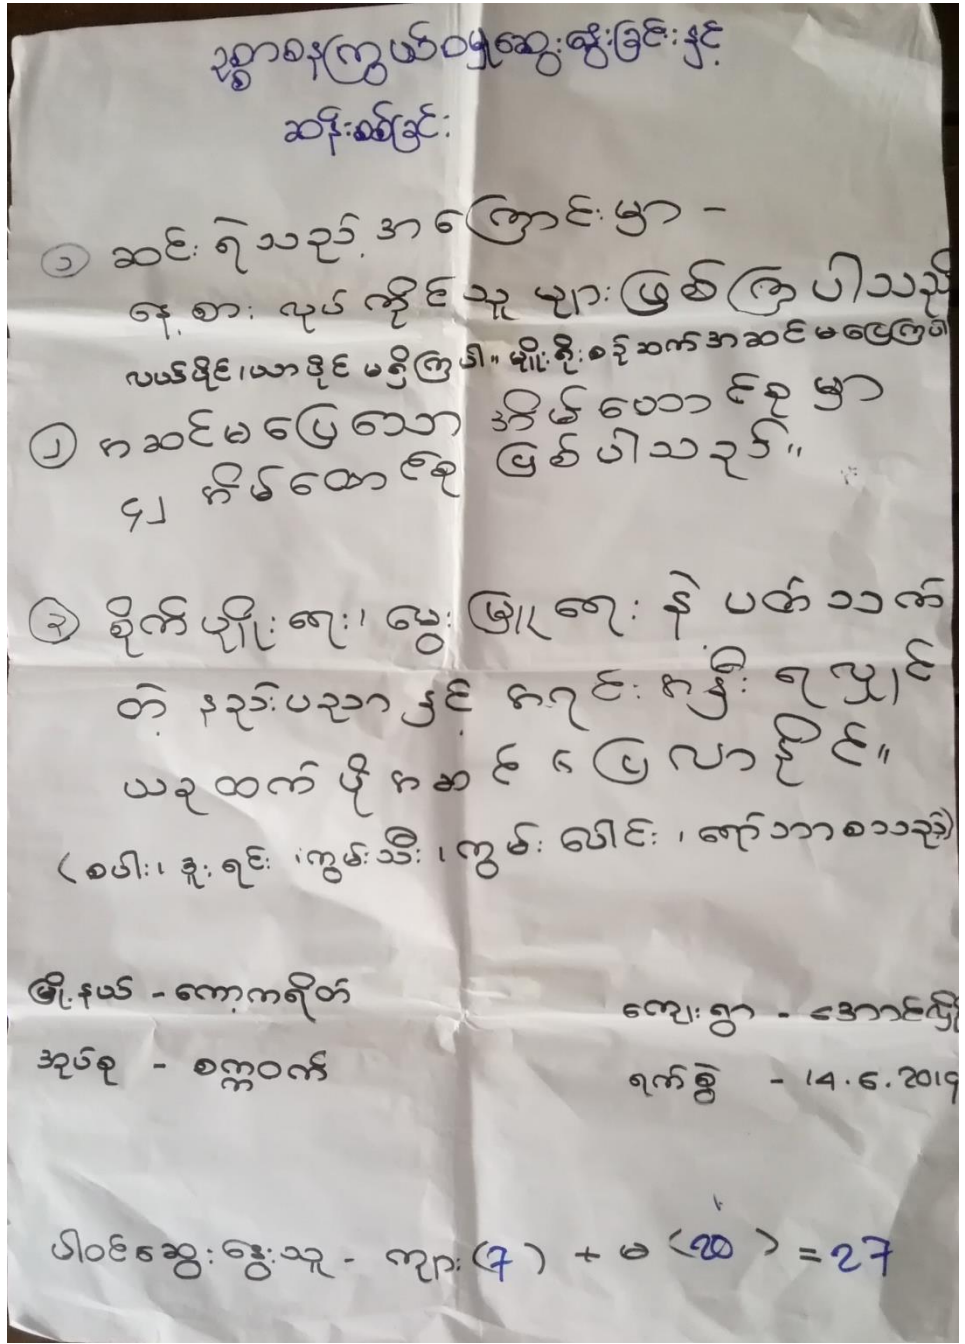 ဥစ္စာဓနကြွယ်ဝမှုဆွေးနွေးခြင်းနှင့်
ဆန်းစစ်ခြင်း
၁ ဆင်းရဲသည့် အကြောင်းမှာ -
နေ့စား လုပ်ကိုင်သူ များ ဖြစ်ကြပါသည်
လယ်ပိုင်၊ ယာပိုင် မရှိကြပါ။ မျိုးရိုးစဉ်ဆက်အဆင်မပြေကြပါ
၂ အဆင်မပြေသော အိမ်ထောင်စု မှာ
၄၂ အိမ်ထောင်စု ဖြစ်ပါသည်။
၃ စိုက်ပျိုးရေး၊ မွေးမြူရေး နဲ့ ပတ်သက်
တဲ့ နည်းပညာ နှင့် အရင်းအနှီး ရလျှင်
ယခုထက် ပို အဆင်ပြေလာနိုင်။
(စပါး၊ ဒူးရင်း၊ ကွမ်းသီး၊ ကွမ်း ပေါင်း၊ ရော်ဘာစသည့်)
မြို့နယ် - ကော့ကရိတ်
ကျေးရွာ -
အုပ်စု - စက္ကဝက်
ရက်စွဲ - 14.6.2019
ပါဝင်ဆွေးနွေးသူ - ကျား (7) + မ (20) = 27